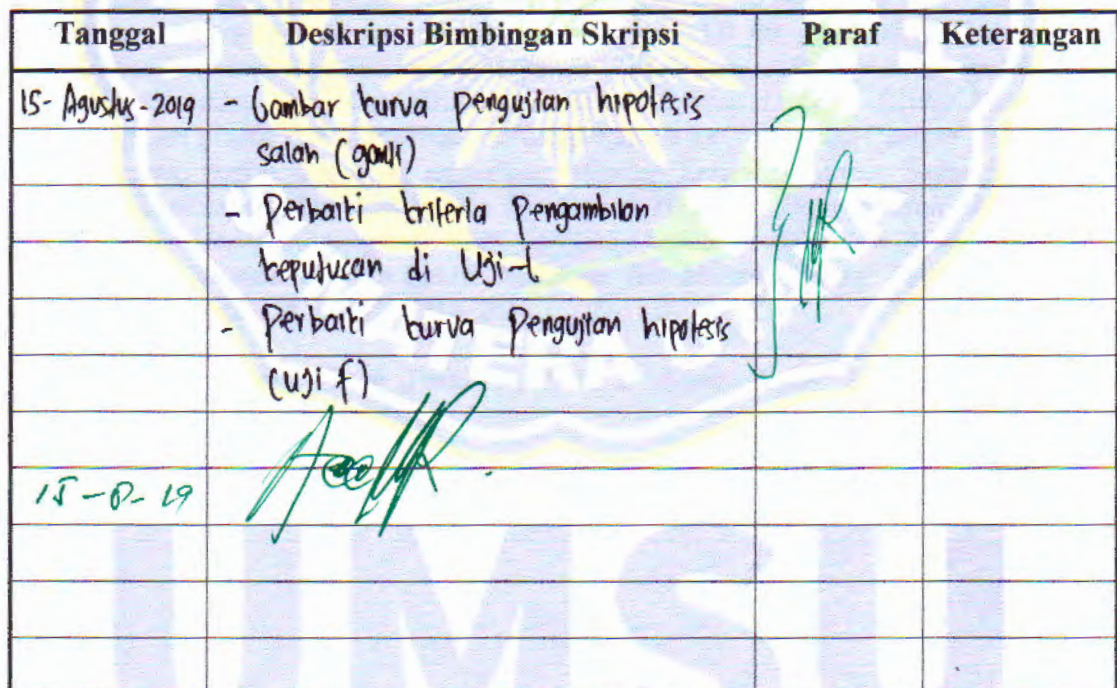 Tanggal Deskripsi Bimbingan Skripsi Paraf Keterangan
15- Agustus - 2019 - Gambar kurva pengujian hipotesis
salah (ganti)
- Perbaiki kriteria Pengambilan
keputusan di Uji-t
- Perbaiki kurva Pengujian hipotesis
(uji f)
Acc
15-8-19
UMSU